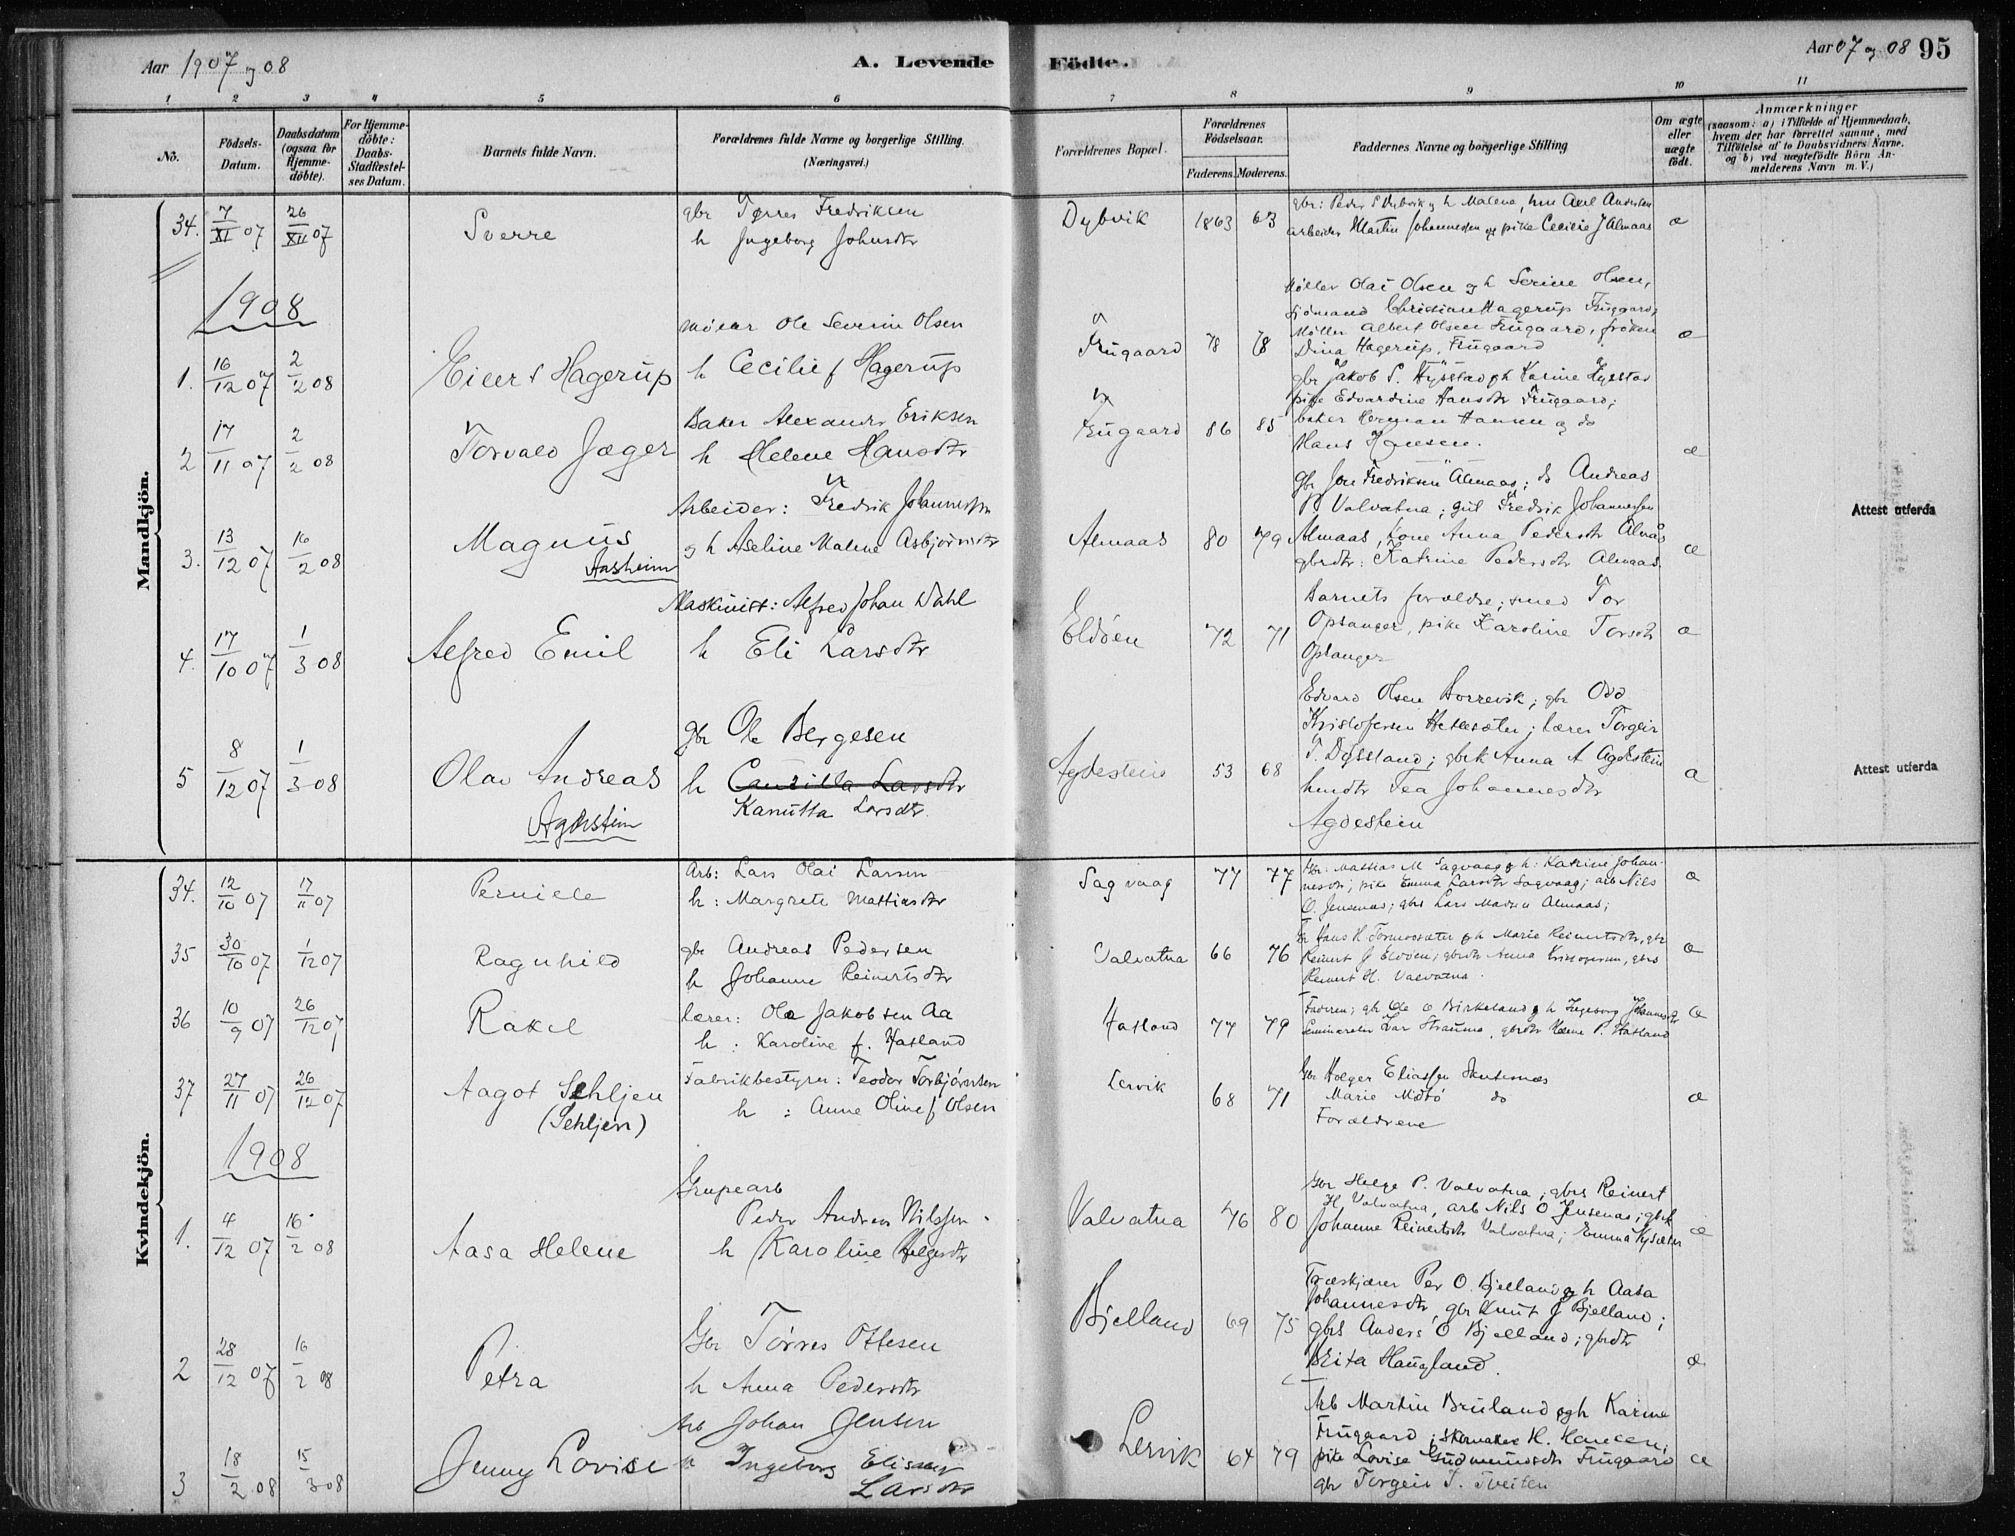 Aar 1907 og 08
A. Levende Födte.
Aar 07 og 08 95
1 2 3 4 5 6 7 8 9 10 11
No.
Födsels-Datum.
Daabsdatum (ogsaa for Hjemme-döbte).
For Hjemme-döbte: Daabs-Stadfæstel-ses Datum.
Barnets fulde Navn.
Forældrenes fulde Navne og borgerlige Stilling. (Næringsvei.)
Forældrenes Bopæl.
Forældrenes Födselsaar.
Faderens. Moderens.
Faddernes Navne og borgerlige Stilling
Om ægte eller uægte födt.
Anmærkninger
(saasom: a) i Tilfælde af Hjemmedaab, hvem der har forrettet samme, med Tilföielse af to Daabsvidners Navne. og b) ved uægtefödte Börn An-melderens Navn m. V.)
Mandkjön.
34. 7/XI 07 26/XII 07 Sverre
gbr Tørres Fredriksen
h Ingeborg Johnsdtr
Dybvik 1863 63
gbr: Peder S Dybvik og h Malene, hm Axel Andersen
arbeider Martin Johannessen og pike Cecilie J Almaas
æ
1908
1. 16/12 07 2/2 08 Eilert Hagerup
Møller Ole Severin Olsen
h Cecilie f Hagerup
Frugaard 78 78
Møller Olai Olsen og h Serine Olsen,
sjømand Christian Hagerup Frugaard,
Møller Albert Olsen Frugaard, frøken
Dina Hagerup, Frugaard
æ
2 17/11 07 2/2 08 Torvald Jæger
Baker Alexander Eriksen
h Helene Hansdtr
Frugaard 86 85
gbr Jakob P. Hystad og h Karine Hystad
pike Edvardine Hansdtr Frugaard;
baker Herman Hansen og do
Hans Hansen.
æ
3. 13/12 07 16/2 08 Magnus
Aasheim
Arbeider: Fredrik Johannessen
og h Aseline Malene Asbjørnsdtr
Almaas 80 79
Gbr Jon Fredriksen Almaas; do Andreas
P Valvatna; gut Fredrik Johannessen
Almaas, kone Anna Pedersdtr Almås
gbrdtr: Katrine Pedersdtr Almaas.
æ
Attest utferda
4. 17/10 07 1/3 08 Alfred Emil
Maskinist: Alfred Johan Dahl
h Eli Larsdtr
Eldøen 72 71
Barnets forældre; smed Tor
Opsanger, pike Karoline Torsdtr
Opsanger
æ
5 8/12 07 1/3 08 Olav Andreas
Agdestein
gbr Ole Bergesen
h Camilla Larsdtr
Kanutta Larsdtr.
Agdestein 53 68
Edvard Olsen Borrevik; gbr Odd
Kristofersen Hetlesæter; lærer Torgeir
T. Døssland; gbrk Anna A Agdestein
hmdtr Tea Johannesdtr
Agdestein
æ
Attest utferda
Kvindekjön.
34. 12/10 07 17/11 07 Pernille
Arb: Lars Olai Larsen
h: Margrete Mattiasdtr
Sagvaag 77 77
Gbr: Mattias M Sagvaag og h: Katrine Johan-
nesdtr; pike Emma Larsdtr Sagvaag; arb Nils
O. Jensenas; gbrs Lars Almaas;
æ
35 30/10 07 1/12 07 Ragnhild
gbr Andreas Pedersen
h Johanne Reinertsdtr
Valvatna 66 76
Hans H. og h Marie Reinertsdtr, gbr
Reinert J Eldøen; gbrdtr Anna, gbrs
Reinert H. Valvatna.
æ
36 10/9 07 26/12 07 Rakel
Lærer: Ola Jakobsen Aa
h: Karoline f. Hatland
Hatland 77 79
Faderen; gbr Ole O Birkeland og h Ingeborg Johannesdtr
Seminarelev Ivar Straume, gbrdtr P. Hatland
æ
37 27/11 07 26/12 07 Aagot Sehljen
(Sehljen)
Fabrikbestyrer: Teodor Torbjørnsen
h: Anne Oline f Olsen
Lervik 68 71
Gbr Holger Eliassen Skutenæs
Marie do
Forældrene
æ
1908
1. 4/12 07 16/2 08 Aasa Helene
Grupearb
Peder Andreas Nilssen
h Karoline Helgesdtr
Valvatna 76 80
Gbr Helge P. Valvatna, gbrs Reinert
H. Valvatna, arb Nils O Jensenas; gbrk
Johanne Reinertsdtr Valvatna; Emma Hysæter
æ
2 28/12 07 16/2 08 Petra
Gbr Tørres Ottesen
h Anna Pedersdtr
Bjelland 69 75
Træskjærer Per O. Bjelland og h Aasa
Johannesdtr, gbr Knut J Bjelland;
gbrs Anders O Bjelland; gbrdtr
Brita Haugland.
æ
3 18/2 08 15/3 08 Jenny Lovise
Arb Johan Jensen
h Ingeborg Elisabet
Larsdtr
Lervik 64 79
Arb Martin Bruland og h Karine
Frugaard; skomaker H. Hansen;
pike Lovise Gudmundsdtr Frugaard
gbr Torgeir T. Tveiten
æ